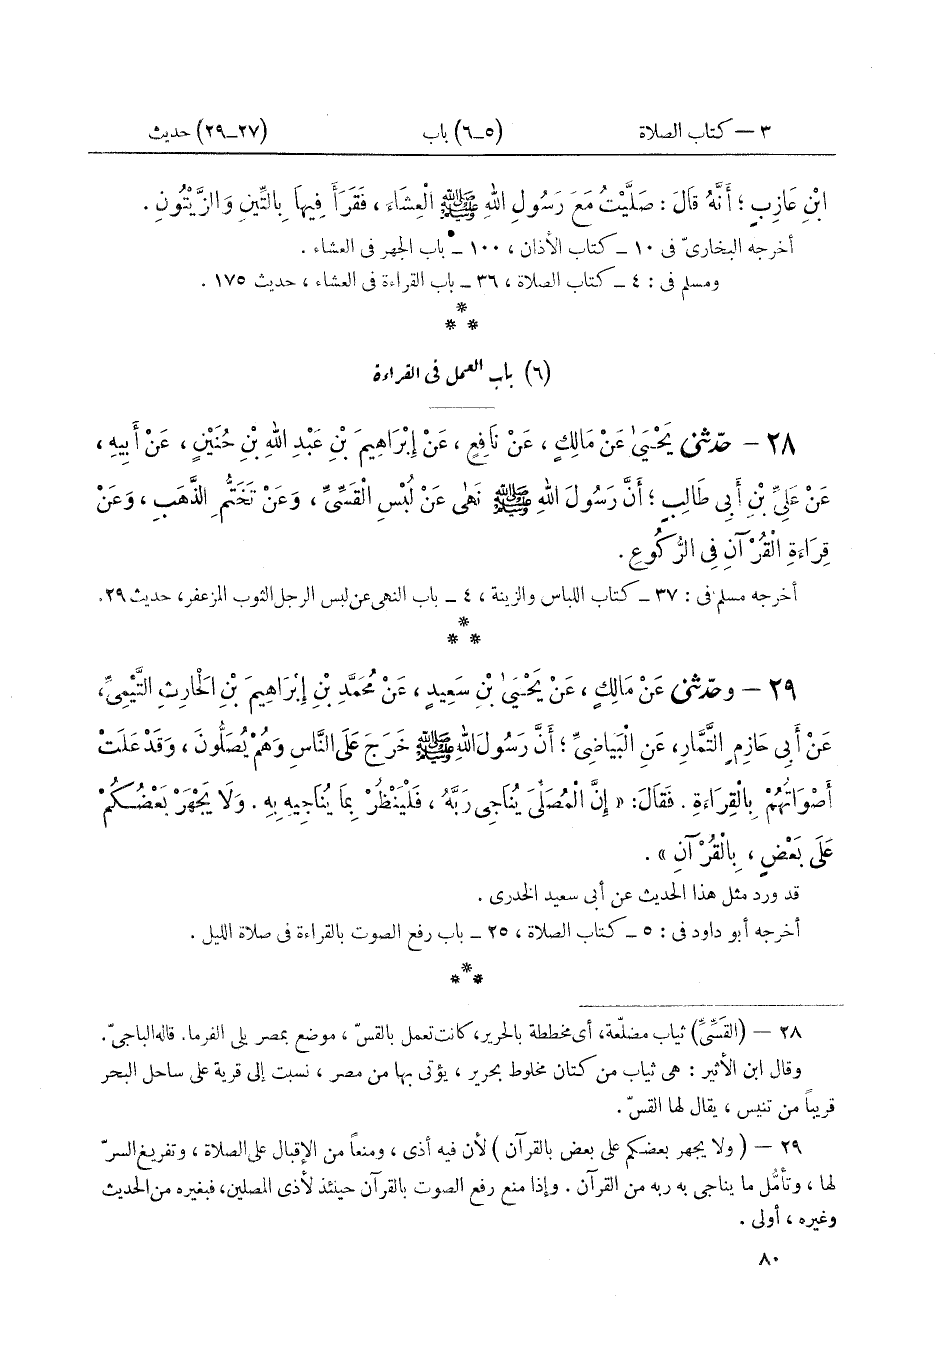 ٣ — كتاب الصلاة (٥ــ٦) باب (٢٧ــ٢٩) حديث
ابْنِ عَازِبٍ ؛ أَنَّهُ قَالَ : صَلَّيْتُ مَعَ رَسُولِ اللهِ ﷺ الْعِشَاءَ ، فَقَرَأَ فِيهَا بِالتِّينِ وَالزَّيْتُونِ .
أخرجه البخارىّ فى ١٠ ــ كتاب الأذان ، ١٠٠ ــ باب الجهر فى العشاء .
ومسلم فى : ٤ ــ كتاب الصلاة ، ٣٦ ــ باب القراءة فى العشاء ، حديث ١٧٥ .
*
* *
(٦) باب العمل فى القراءة
٢٨ — حدّثنى يَحْيَىٰ عَنْ مَالِكٍ ، عَنْ نَافِعٍ ، عَنْ إِبْرَاهِيمَ بْنِ عَبْدِ اللهِ بْنِ حُنَيْنٍ ، عَنْ أَبِيهِ ،
عَنْ عَلِيِّ بْنِ أَبِى طَالِبٍ ؛ أَنَّ رَسُولَ اللهِ ﷺ نَهَى عَنْ لُبْسِ الْقَسِّىِّ ، وَعَنْ تَخَتُّمِ الذَّهَبِ ، وَعَنْ
قِرَاءَةِ الْقُرْآنِ فِى الرُّكُوعِ .
أخرجه مسلم فى : ٣٧ ــ كتاب اللباس والزينة ، ٤ ــ باب النهى عن لبس الرجل الثوب المزعفر، حديث ٢٩.
*
* *
٢٩ — وحدّثنى عَنْ مَالِكٍ ، عَنْ يَحْيَىٰ بْنِ سَعِيدٍ ، عَنْ مُحَمَّدِ بْنِ إِبْرَاهِيمَ بْنِ الْحَارِثِ التَّيْمِىِّ،
عَنْ أَبِى حَازِمٍ التَّمَّارِ، عَنِ الْبَيَاضِىِّ ؛ أَنَّ رَسُولَ اللهِ ﷺ خَرَجَ عَلَى النَّاسِ وَهُمْ يُصَلُّونَ ، وَقَدْ عَلَتْ
أَصْوَاتُهُمْ بِالْقِرَاءَةِ . فَقَالَ: « إِنَّ الْمُصَلِّىَ يُنَاجِى رَبَّهُ ، فَلْيَنْظُرْ بِمَا يُنَاجِيهِ بِهِ . وَلَا يَجْهَرْ بَعْضُكُمْ
عَلَى بَعْضٍ ، بِالْقُرْآنِ » .
قد ورد مثل هذا الحديث عن أبى سعيد الخدرى .
أخرجه أبو داود فى : ٥ ــ كتاب الصلاة ، ٢٥ ــ باب رفع الصوت بالقراءة فى صلاة الليل .
*
* *
٢٨ — (القَسِّىِّ) ثياب مضلّعة، أى مخططة بالحرير، كانت تعمل بالقسّ ، موضع بمصر يلى الفرما. قاله الباجىّ.
وقال ابن الأثير : هى ثياب من كتان مخلوط بحرير ، يؤتى بها من مصر ، نسبت إلى قرية على ساحل البحر
قريباً من تنيس ، يقال لها القسّ .
٢٩ — ( ولا يجهر بعضكم على بعض بالقرآن ) لأن فيه أذى ، ومنعاً من الإقبال على الصلاة ، وتفريغ السرّ
لها ، وتأمُّل ما يناجى به ربه من القرآن . وإذا منع رفع الصوت بالقرآن حينئذ لأذى المصلين، فبغيره من الحديث
وغيره ، أولى .
٨٠